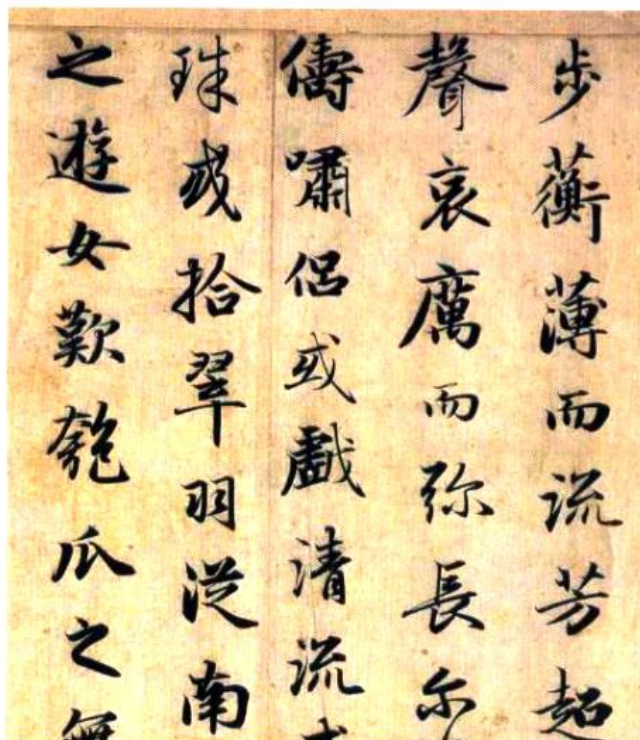 步蘅薄而流芳超
聲哀厲而弥長尔
儔嘯侣或戲清流或
珠或拾翠羽從南
之遊女歎匏瓜之無